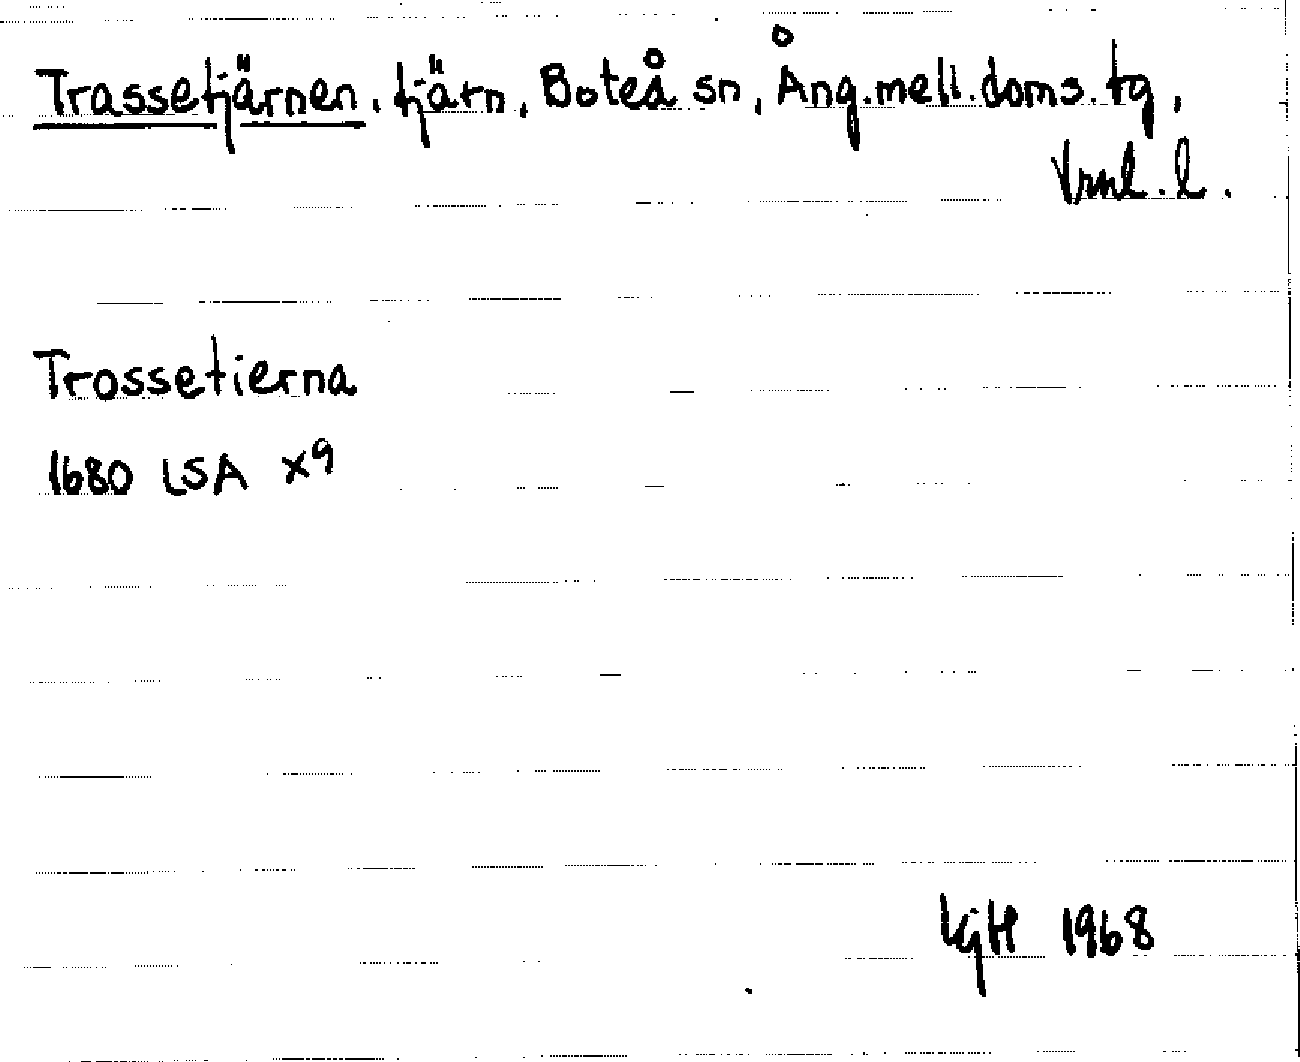 Trassetjärnen, tjärn, Boteå sn, Ång.mell.doms.tg,
Vrnl.l.
Trossetierna
1680 LSA X9
KjH 1968